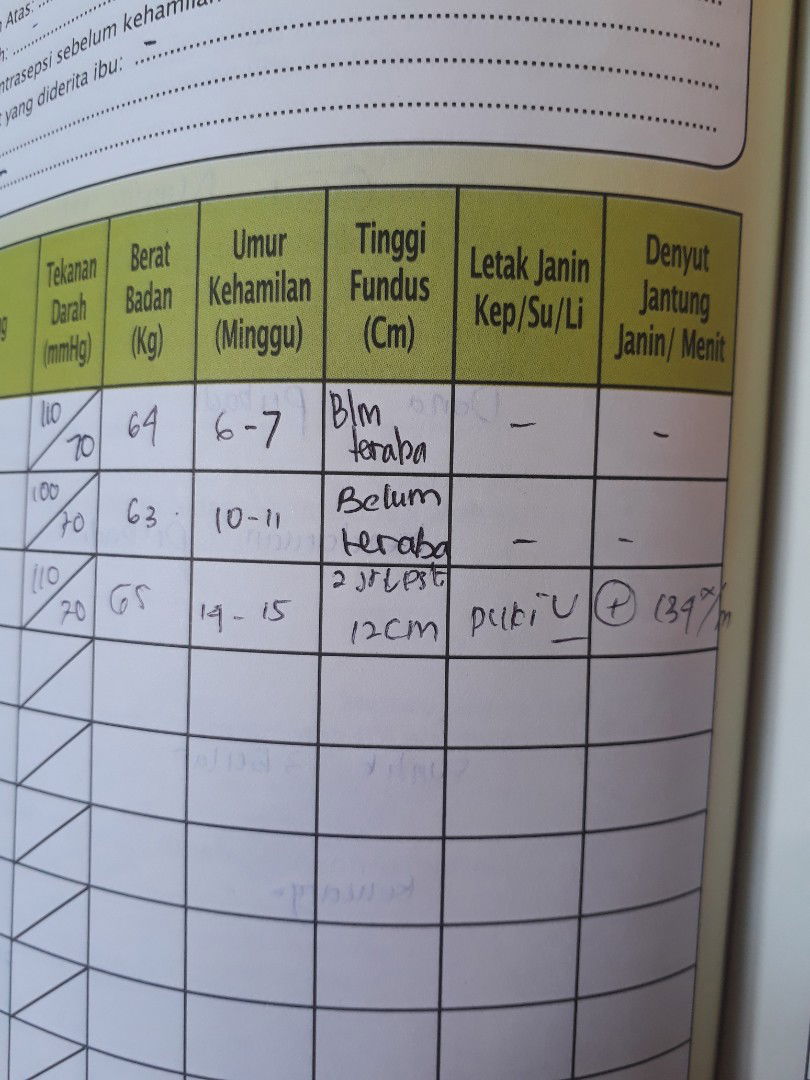 Atas:
h:
ntrasepsi sebelum kehamila
yang diderita ibu: -
g
Tekanan Darah (mmHg)
Berat Badan (Kg)
Umur Kehamilan (Minggu)
Tinggi Fundus (Cm)
Letak Janin Kep/Su/Li
Denyut Jantung Janin/ Menit
110/70 64 6-7 Blm teraba - -
100/70 63 10-11 Belum teraba - -
110/70 65 14-15 2 jr 12cm puki U + 134x/m